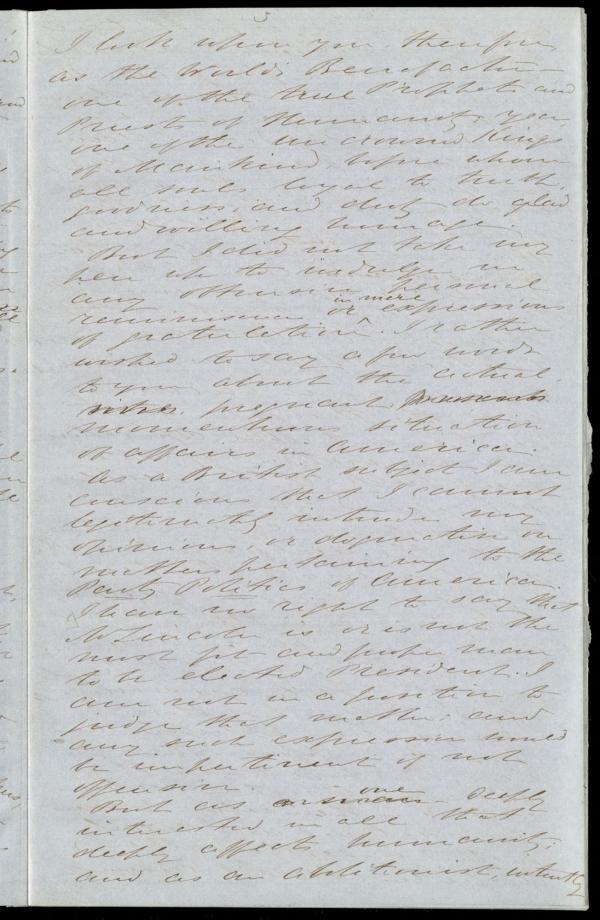 5
I look upon you, therefore,
as the World's Benefactor
one of the true Prophets and
Priests of Humanity, yea
one of the uncrowned Kings
of Mankind, before whom
all souls loyal to truth,
goodness, and duty do glad
and willing homage.
But I did not take my
pen up to indulge in
any offensive personal
reminiscence or in mere expressions
of gratulation. I rather
wished to say a few words
to you about the actual
pregnant
momentous situation
of affairs in America.
As a British subject I am
conscious that I cannot
legitimately intrude my
opinions, or dogmatise on
matters pertaining to the
Party Politics of America.
I have no right to say that
Mr Lincoln is or is not the
most fit and proper man
to be elected President. I
am not in a position to
judge that matter; and
any such expression would
be impertinent if not
offensive.
But as one deeply
interested in all that
deeply affects humanity;
and as an abolitionist, intently